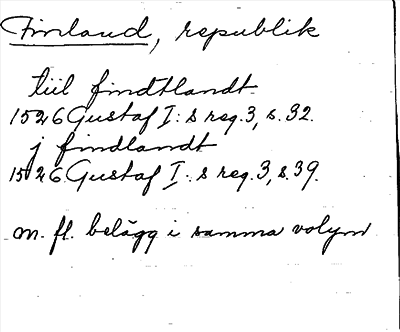 Finland, republik
tiil findtlandt
1526 Gustaf I:s reg. 3, s. 32.
j findlandt
1526 Gustaf I:s reg. 3, s. 39.
m. fl. belägg i samma volym